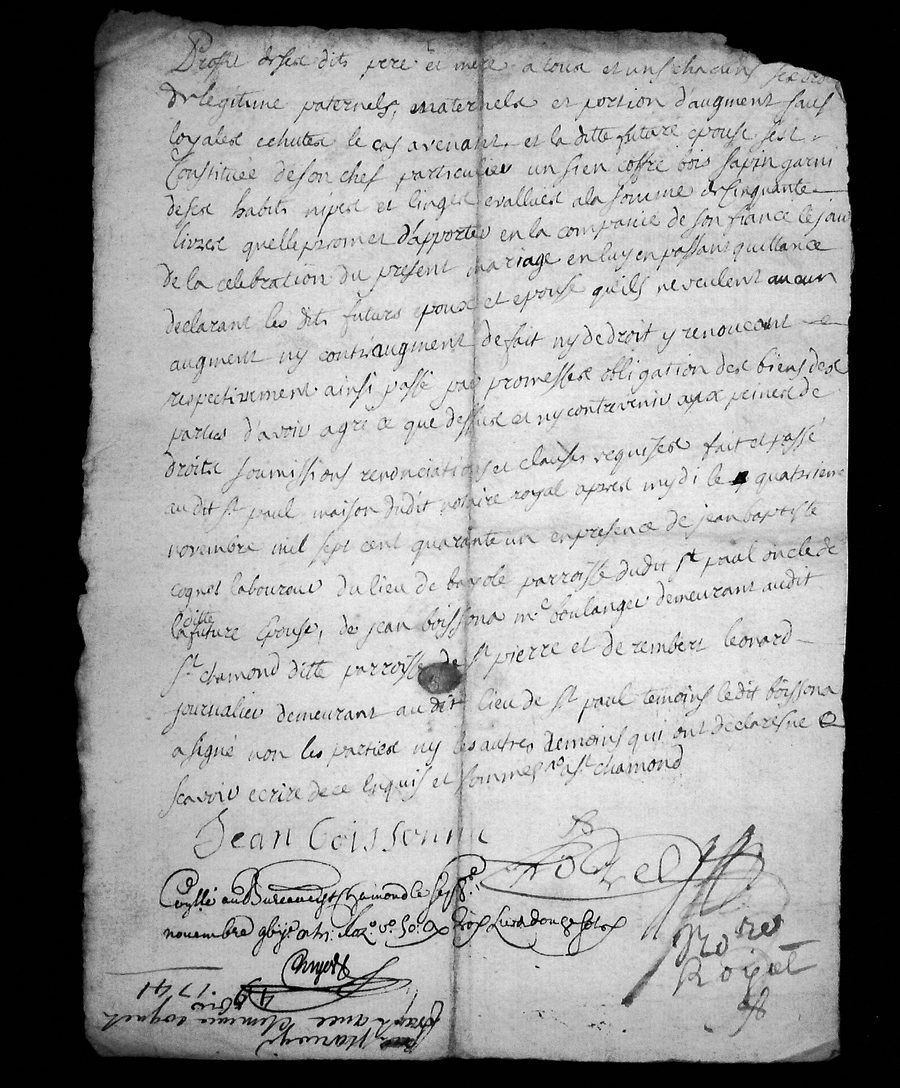 Proffit desd dits pere et mere a tous et uns chacuns ses droits
de legitime paternels, maternels et portion d'augment sauf
loyales echutes le cas avenant, et la ditte future epouse s'est
Constituée de son chef particulier un sien coffre bois sapin garni
de ses habits nipes et linges evallués a la somme de Cinquante
livres quelle promet d'apporter en la compagnie de son fiancé le jour
de la celebration du present mariage en luy en passant quittance
declarant les dits futurs epoux et epouse qu'ils ne veulent aucun
augment ny contraugment de fait ny de droit y renoncent
respectivement ainsi passé par promesses obligation des biens des
parties d'avoir agré ce que dessus et ny contrevenir aux peines de
droits soumissions renonciations et clauses requises fait et passé
audit st paul maison dudit notaire royal apres mydi le quatrieme
novembre mil sept cent quarante un en presence de jean baptiste
cognet laboureur du lieu de bayole parroisse dudit st paul oncle de
laditte future Epouse, de jean boissona me boulanger demeurant audit
st chamond ditte parroisse de st pierre et de rembert leonard
journalier demeurant audit lieu de st paul temoins le dit boissona
a signé non les parties ny les autres temoins qui ont declarés ne
scavoir ecrire de ce Enquis et sommés a st chamond
Jean Boissonna
au Bureau de st chamond le
novembre
Nore
Royal
4 9bre 1741
Mariage